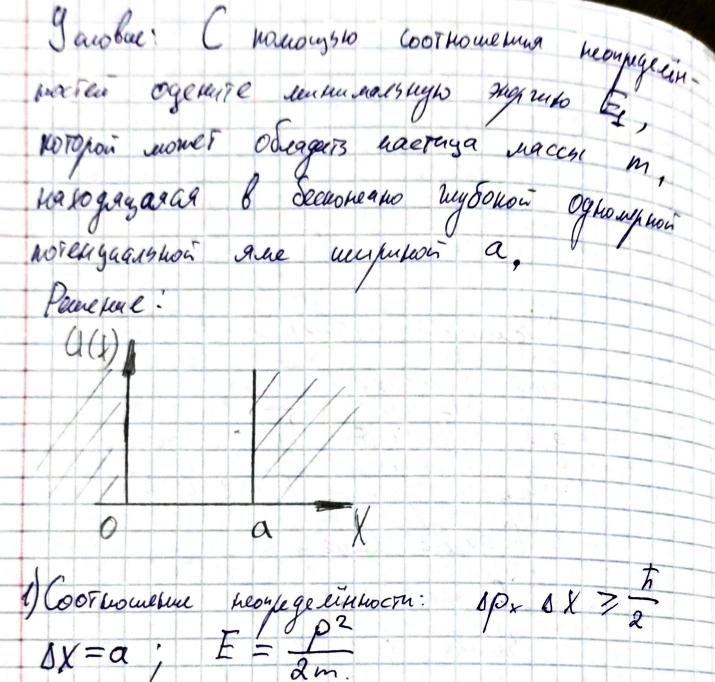 Условие: С помощью соотношения неопределён-
ностей оцените минимальную энергию E₁,
которой может обладать частица массы m,
находящаяся в бесконечно глубокой одномерной
потенциальной яме шириной a,
Решение:
U(x)
0 a X
1) Соотношение неопределённости: Δpₓ Δx ≥ ħ/2
Δx = a ; E = p²/2m.